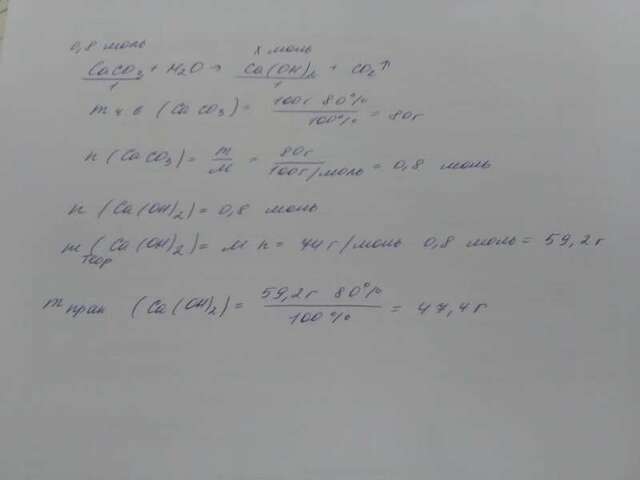 0,8 моль x моль
CaCO3 + H2O → Ca(OH)2 + CO2↑
1 1
m ч в (CaCO3) = 100г 80% / 100% = 80г
n (CaCO3) = m / M = 80г / 100г/моль = 0,8 моль
n (Ca(OH)2) = 0,8 моль
m теор (Ca(OH)2) = M n = 44г/моль 0,8 моль = 59,2г
m прак (Ca(OH)2) = 59,2г 80% / 100% = 47,4г